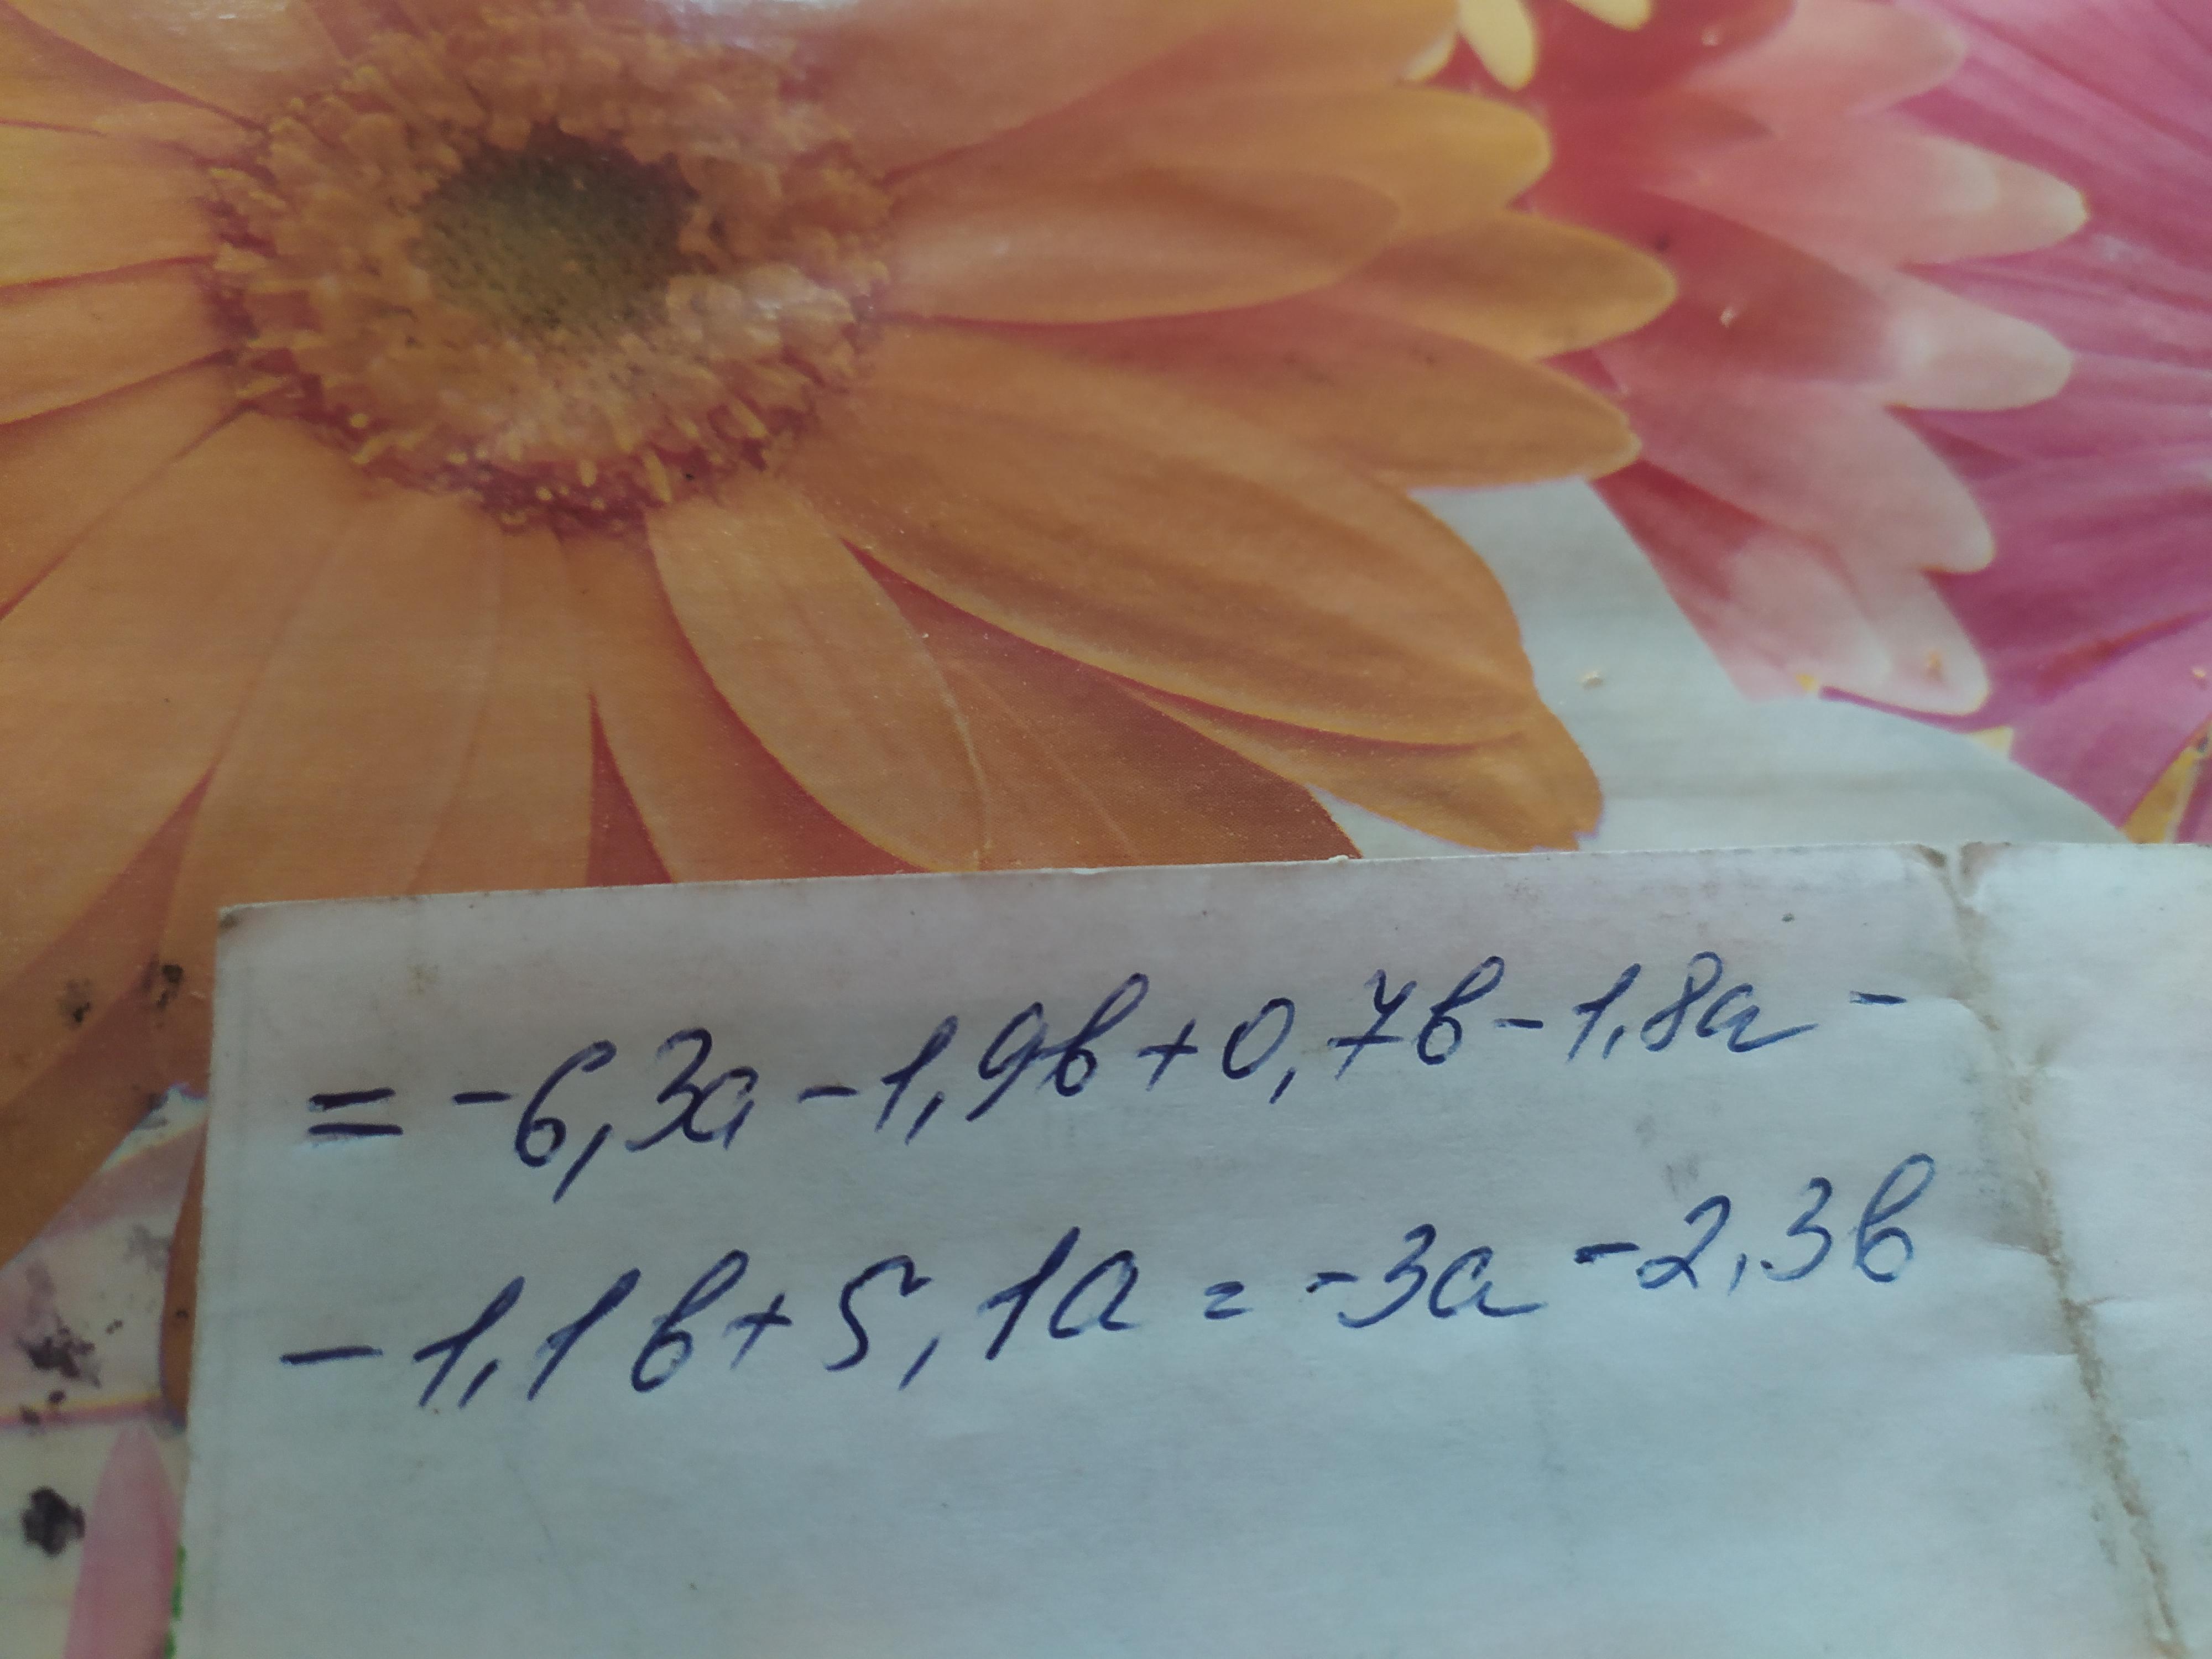 = -6,3а - 1,9в + 0,7в - 1,8а -
- 1,1в + 5,1а = -3а - 2,3в